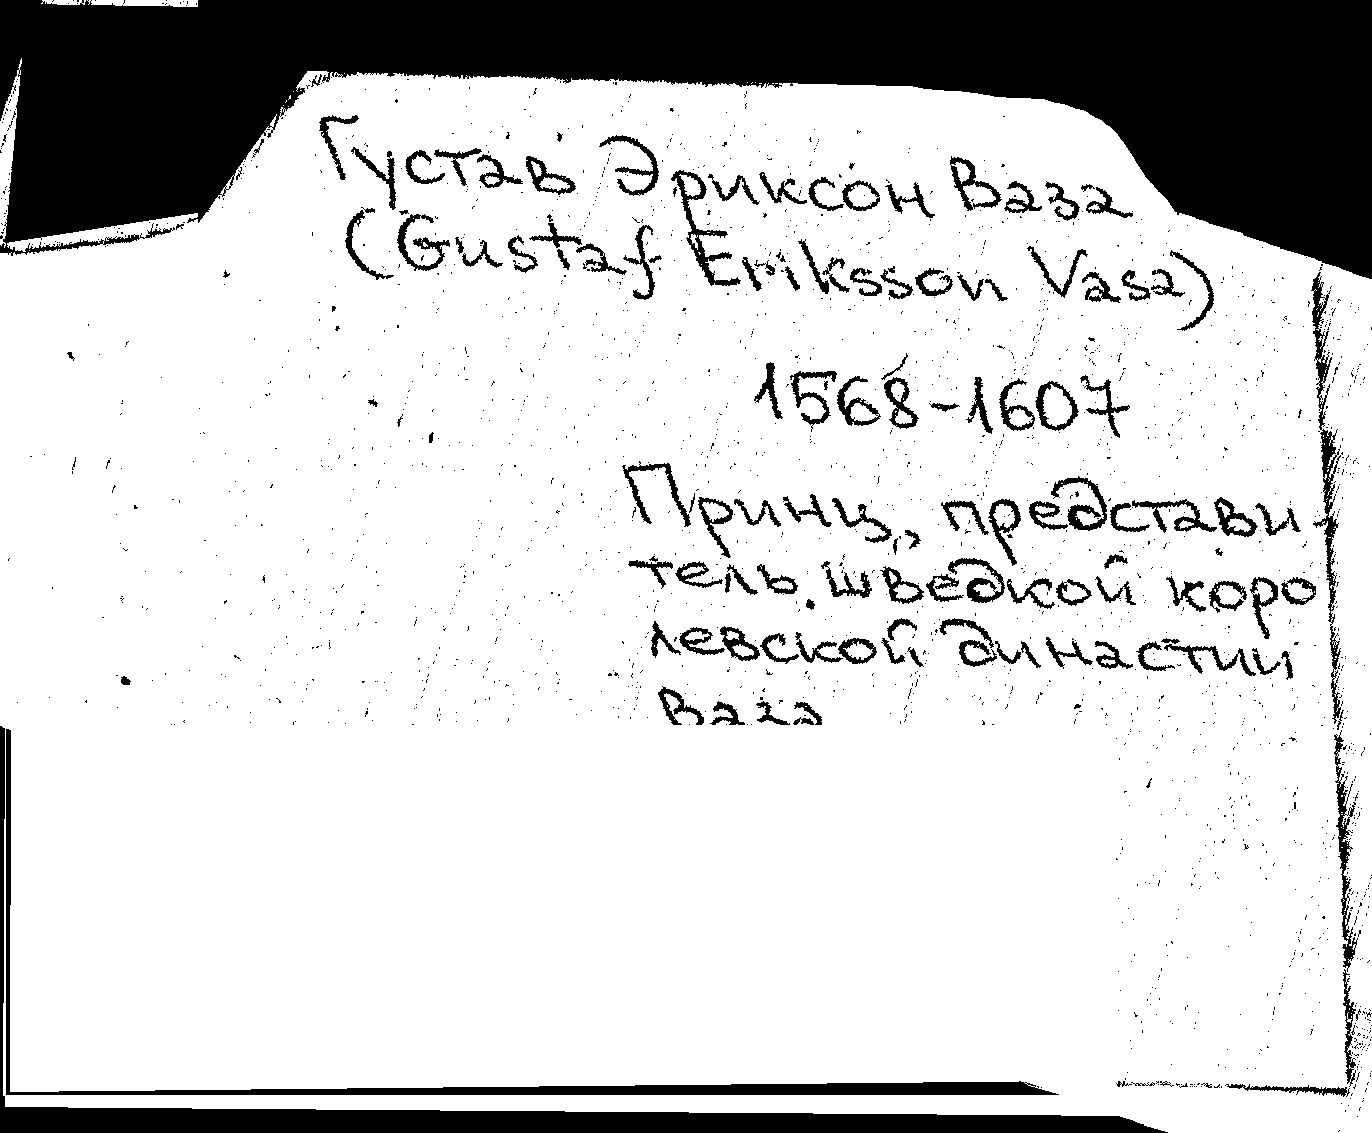 Густав Эриксон Ваза
(Gustaf Eriksson Vasa)
1568-1607
Принц, представи-
тель шведкой коро
левской династии
Ваза